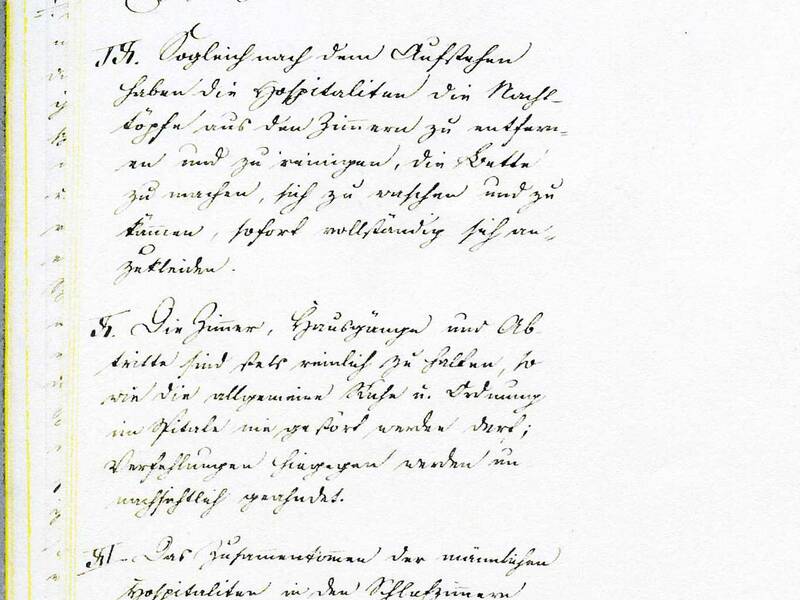 IV. Sogleich nach dem Aufstehen
haben die Hospitaliten die Nacht-
töpfe aus den Zimmern zu entfern-
en und zu reinigen, die Bette
zu machen, sich zu waschen und zu
kämmen, sofort vollständig sich an-
zukleiden.
V. Die Zimmer, Hausgänge und Ab-
tritte sind stets reinlich zu halten, so
wie die allgemeine Ruhe u. Ordnung
im Spitale nie gestört werden darf;
Verfehlungen hingegen werden un
nachsichtlich geahndet.
VI. Das Zusammenkommen der männlichen
Hospitaliten in den Schlafzimmern